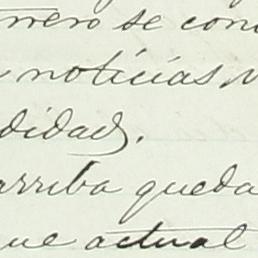 rrero se con
noticias
didad,.
arriba queda
que actual